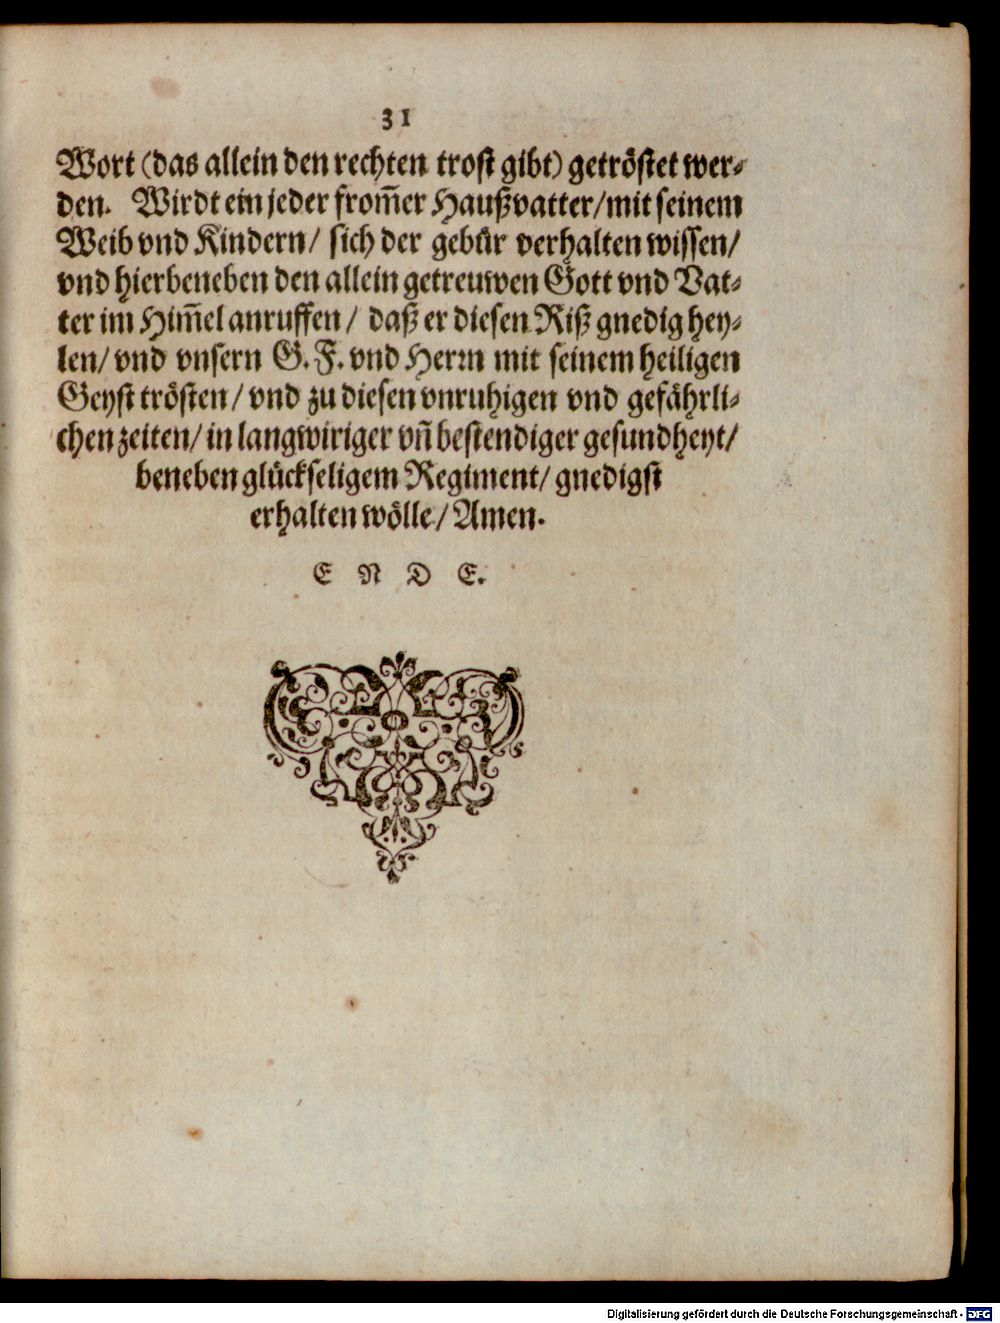 31
Wort (das allein den rechten trost gibt) getröstet wer⸗
den. Wirdt ein jeder from̃er Haußvatter/ mit seinem
Weib vnd Kindern/ sich der gebür verhalten wissen/
vnd hierbeneben den allein getreuwen Gott vnd Vat⸗
ter im Him̃el anruffen/ daß er diesen Riß gnedig hey⸗
len/ vnd vnsern G. F. vnd Herrn mit seinem heiligen
Geyst trösten/ vnd zu diesen vnruhigen vnd gefährli⸗
chen zeiten/ in langwiriger vñ bestendiger gesundheyt/
beneben glückseligem Regiment/ gnedigst
erhalten wölle/ Amen.
E N D E.
Digitalisierung gefördert durch die Deutsche Forschungsgemeinschaft - DFG